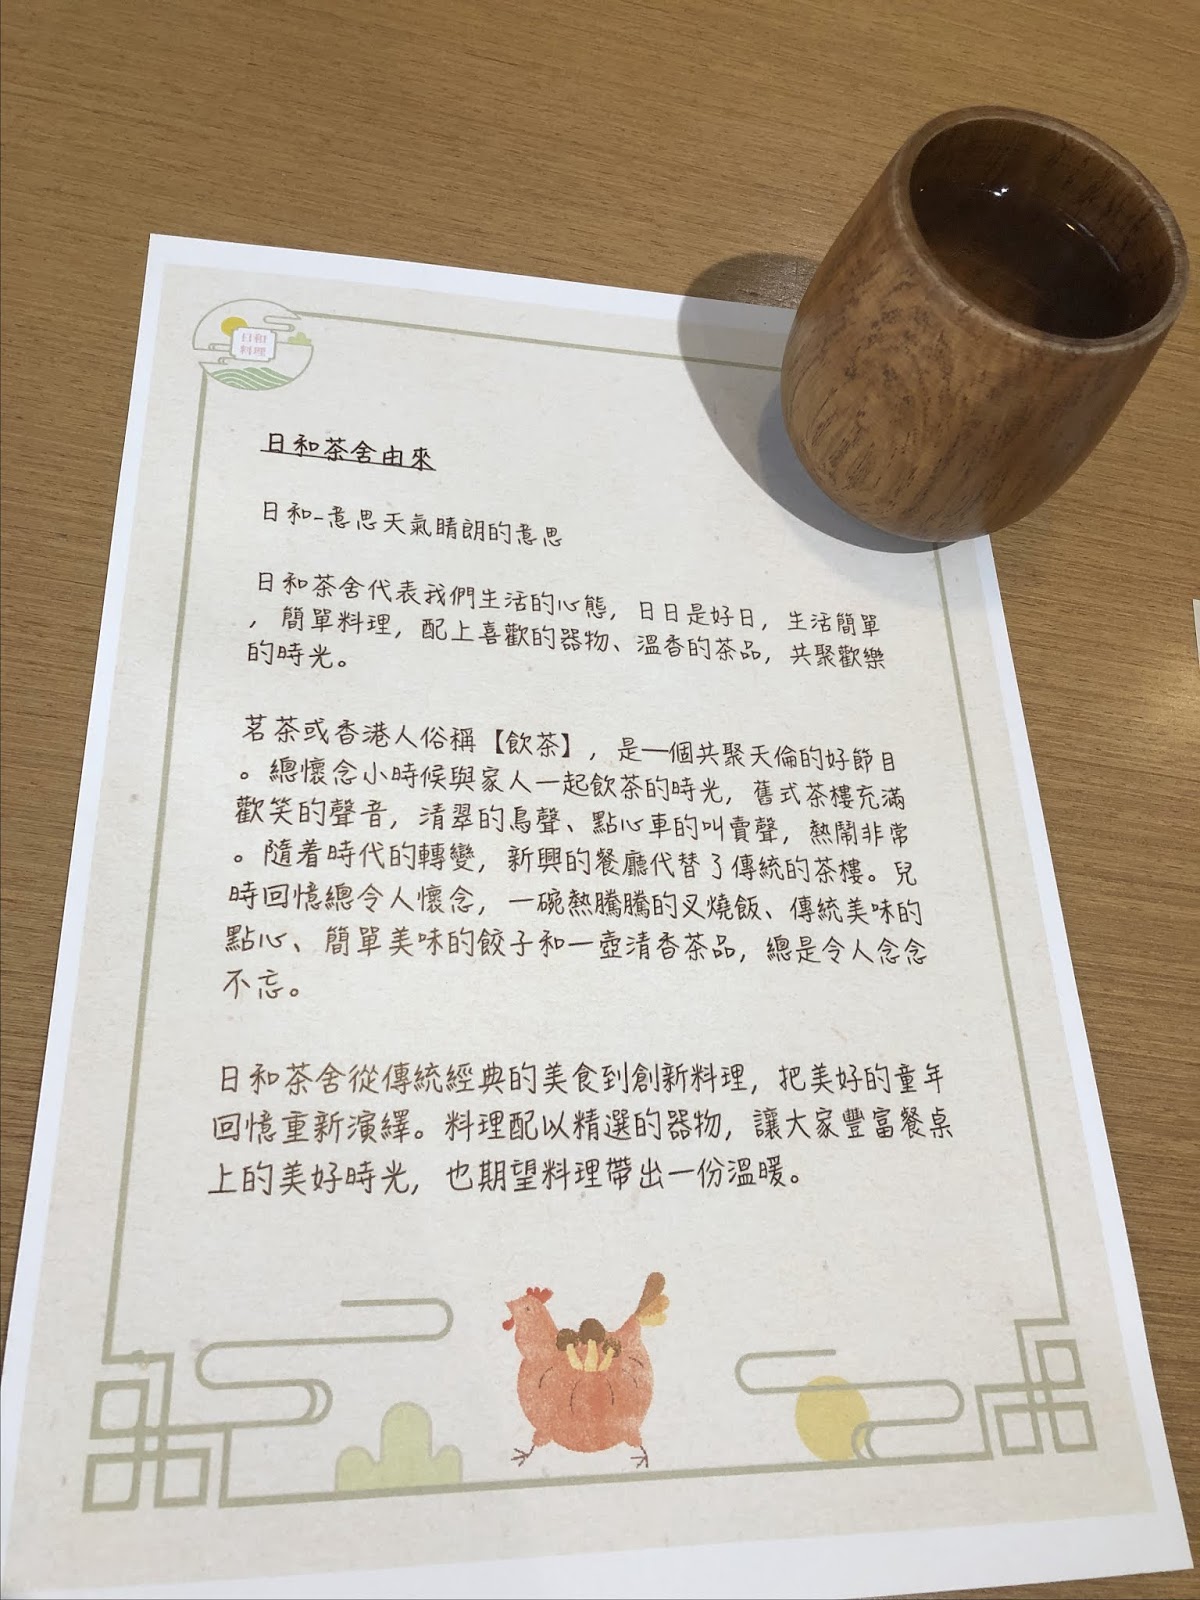 日和
料理
日和茶舍由來
日和-意思天氣晴朗的意思
日和茶舍代表我們生活的心態，日日是好日，生活簡單
，簡單料理，配上喜歡的器物、溫香的茶品，共聚歡樂
的時光。
茗茶或香港人俗稱【飲茶】，是一個共聚天倫的好節目
。總懷念小時候與家人一起飲茶的時光，舊式茶樓充滿
歡笑的聲音，清翠的鳥聲、點心車的叫賣聲，熱鬧非常
。隨着時代的轉變，新興的餐廳代替了傳統的茶樓。兒
時回憶總令人懷念，一碗熱騰騰的叉燒飯、傳統美味的
點心、簡單美味的餃子和一壺清香茶品，總是令人念念
不忘。
日和茶舍從傳統經典的美食到創新料理，把美好的童年
回憶重新演繹。料理配以精選的器物，讓大家豐富餐桌
上的美好時光，也期望料理帶出一份溫暖。